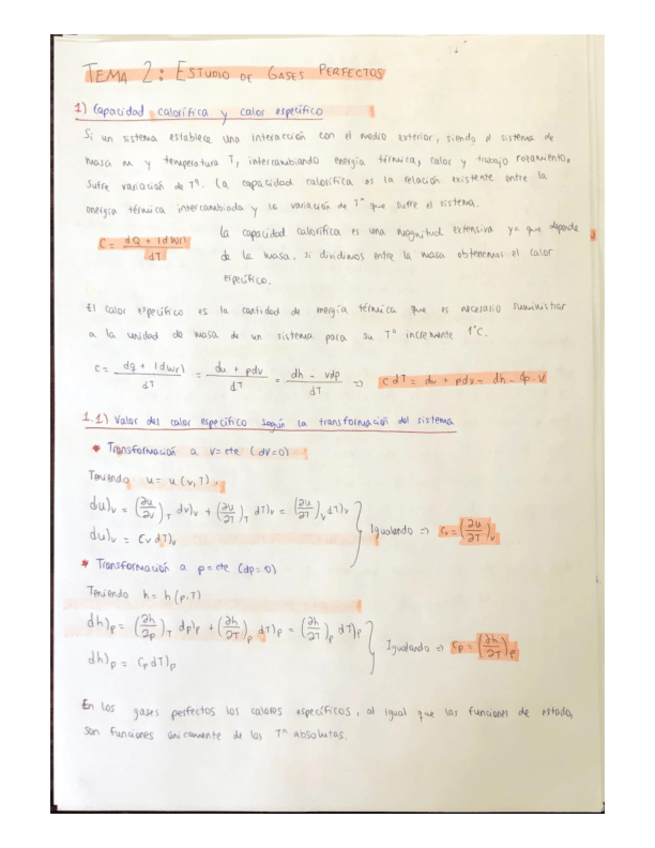 TEMA 2: ESTUDIO DE GASES PERFECTOS
1) Capacidad calorífica y calor específico
Si un sistema establece una interacción con el medio exterior, siendo el sistema de
masa m y temperatura T, intercambiando energía térmica, calor y trabajo rozamiento,
sufre variación de Tª. La capacidad calorífica es la relación existente entre la
energía térmica intercambiada y la variación de Tª que sufre el sistema.
C = dQ + |dWr| / dT
La capacidad calorífica es una magnitud extensiva ya que depende
de la masa, si dividimos entre la masa obtenemos el calor
específico.
El calor específico es la cantidad de energía térmica que es necesario suministrar
a la unidad de masa de un sistema para su Tª incremente 1°C.
c = dq + |dwr| / dT = du + pdv / dT = dh - vdp / dT => c dT = du + pdv = dh - dp·v
1.1) Valor del calor específico según la transformación del sistema
* Transformación a v=cte (dv=0)
Teniendo u = u(v,T),
du)v = (∂u/∂v)T dv)v + (∂u/∂T)v dT)v = (∂u/∂T)v dT)v
du)v = cv dT)v
Igualando => cv = (∂u/∂T)v
* Transformación a p=cte (dp=0)
Teniendo h = h(p,T)
dh)p = (∂h/∂p)T dp)p + (∂h/∂T)p dT)p = (∂h/∂T)p dT)p
dh)p = cp dT)p
Igualando => cp = (∂h/∂T)p
En los gases perfectos los calores específicos, al igual que las funciones de estado,
son funciones únicamente de las Tª absolutas.